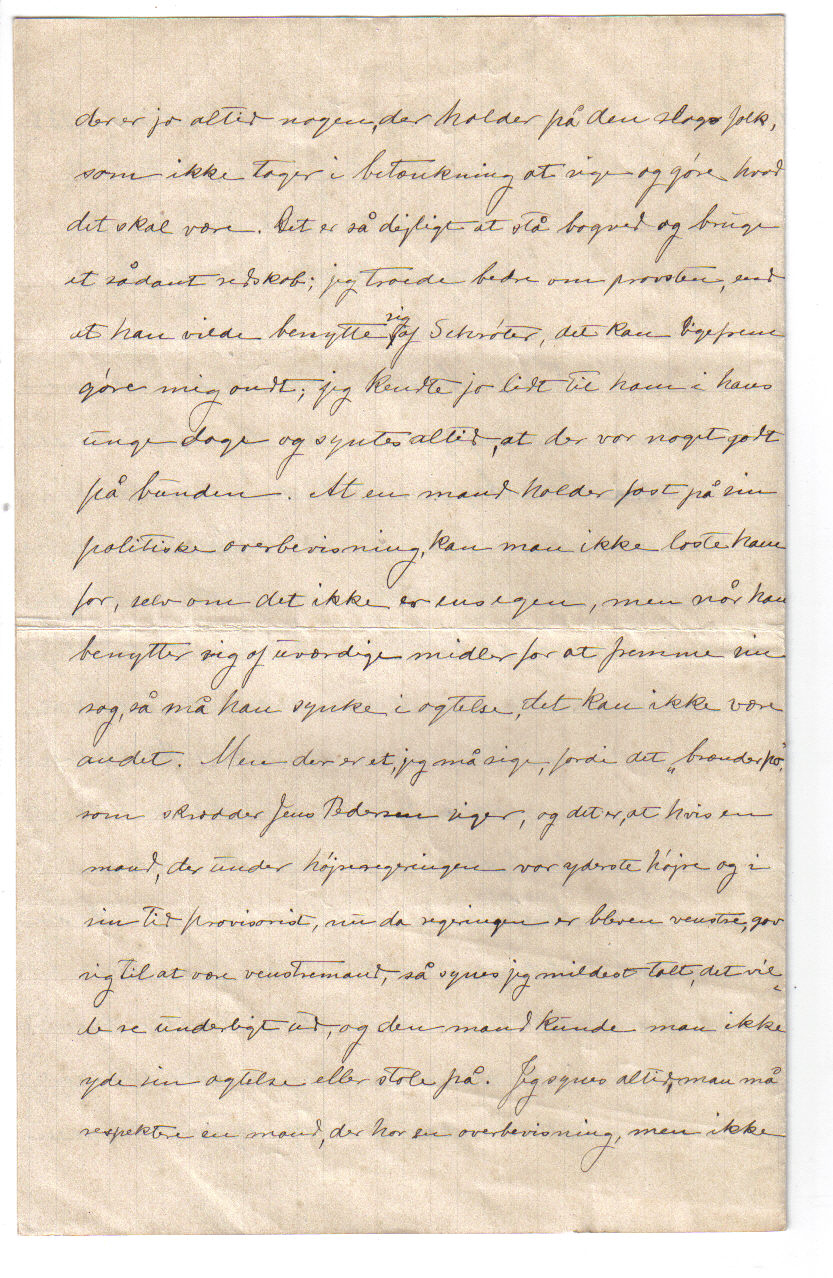 der er jo altid nogen, der holder på den slags folk,
som ikke tager i betænkning at sige og gøre hvad
det skal være. Det er så dejligt at stå bagved og bruge
et sådant redskab; jeg troede bedre om provsten, end
at han vilde benytte sig af Schrøter, det kan ligefrem
gøre mig ondt; jeg kendte jo lidt til ham i hans
unge dage og syntes altid, at der var noget godt
på bunden. At en mand holder fast på sin
politiske overbevisning, kan man ikke laste ham
for, selv om det ikke er ens egen, men når han
benytter sig af uværdige midler for at fremme sin
sag, så må han synke i agtelse, det kan ikke være
andet. Men der er et, jeg må sige, fordi det „brænder på“,
som skrædder Jens Pedersen siger, og det er, at hvis en
mand, der under højreregeringen var yderste højre og i
sin tid provisorist, nu da regeringen er bleven venstre, gav
sig til at være venstremand, så synes jeg mildest talt, det vil-
de se underligt ud, og den mand kunde man ikke
yde sin agtelse eller stole på. Jeg synes altid, man må
respektere en mand, der har en overbevisning, men ikke